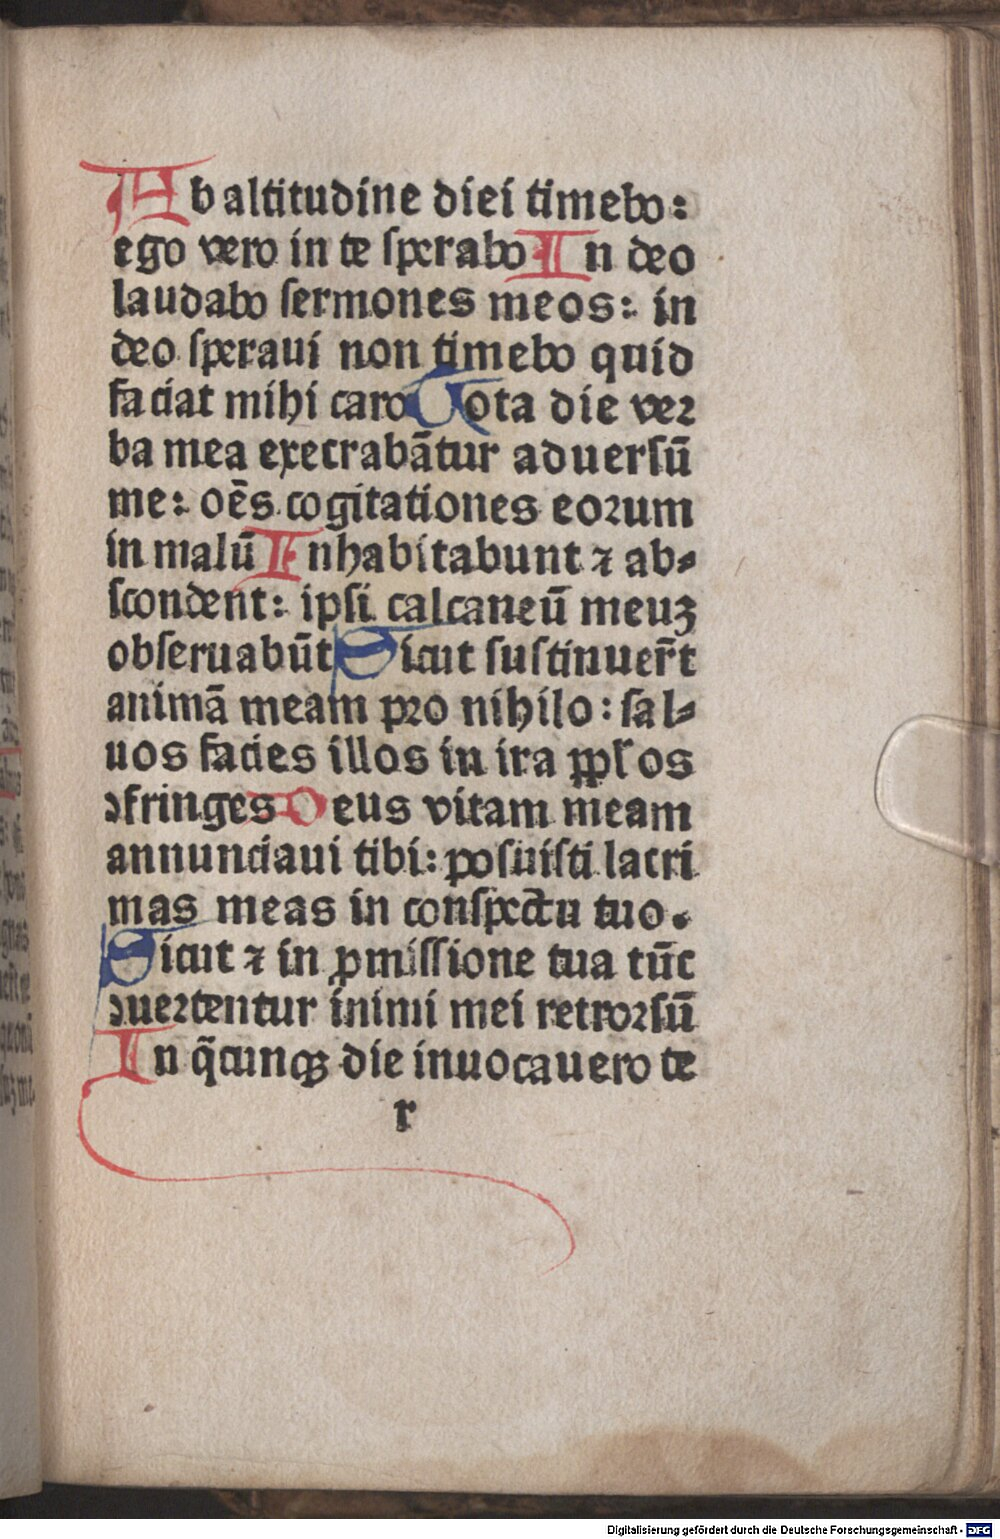 Ab altitudine diei timebo:
ego vero in te sperabo In deo
laudabo sermones meos: in
deo speraui non timebo quid
faciat mihi caro Tota die ver
ba mea execrabãtur aduersũ
me: oẽs cogitationes eorum
in malũ Inhabitabunt ⁊ ab⸗
scondent: ipsi calcaneũ meuꝫ
obseruabũt Sicut sustinuer̃t
animã meam pro nihilo: sal⸗
uos facies illos in ira ppl'os
ↄfringes Deus vitam meam
annunciaui tibi: posuisti lacri
mas meas in conspectu tuo.
Sicut ⁊ in ꝓmissione tua tũc
ↄuertentur inimi mei retrorsũ
In q̃cunqꝫ die inuocauero te
r
Digitalisierung gefördert durch die Deutsche Forschungsgemeinschaft - DFG